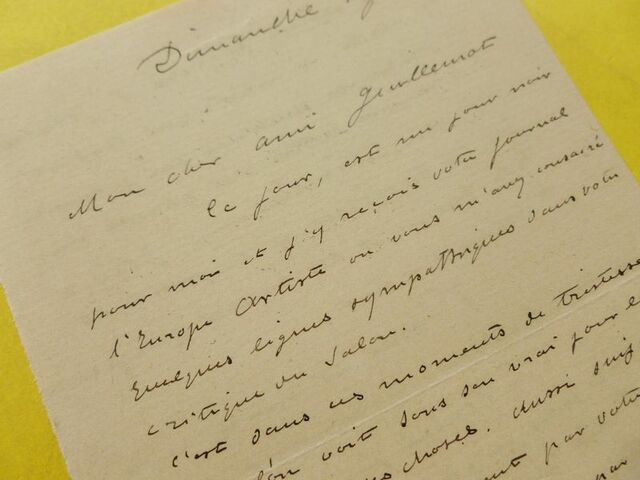 Dimanche
Mon cher ami Guillemot
Ce jour, est un jour noir
pour moi et j'y reçois votre journal
l'Europe Artiste où vous m'avez consacré
quelques lignes sympathiques dans votre
critique du Salon.
C'est dans ces moments de tristesse
l'on voit sous son vrai jour le
choses. Aussi suis
par votre
par